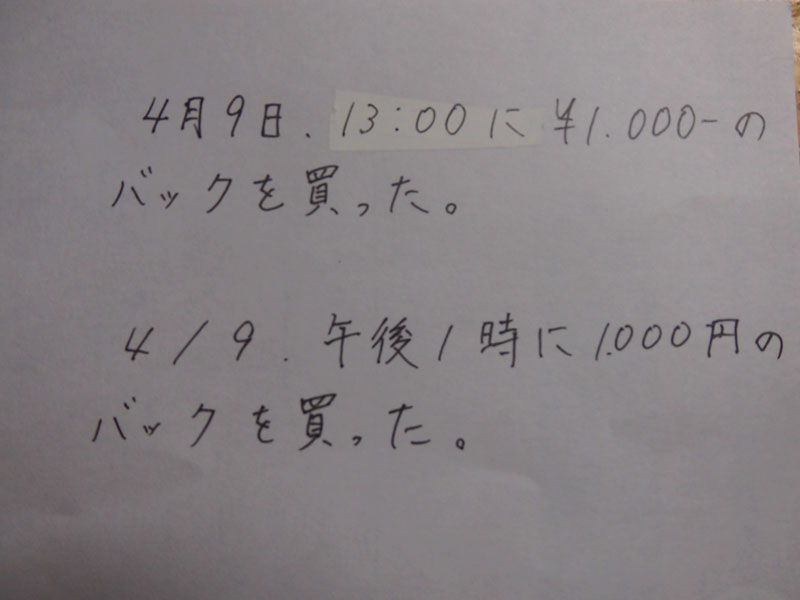 4月9日. 13:00に ¥1.000-の
バックを買った。
4/9. 午後1時に1.000円の
バックを買った。